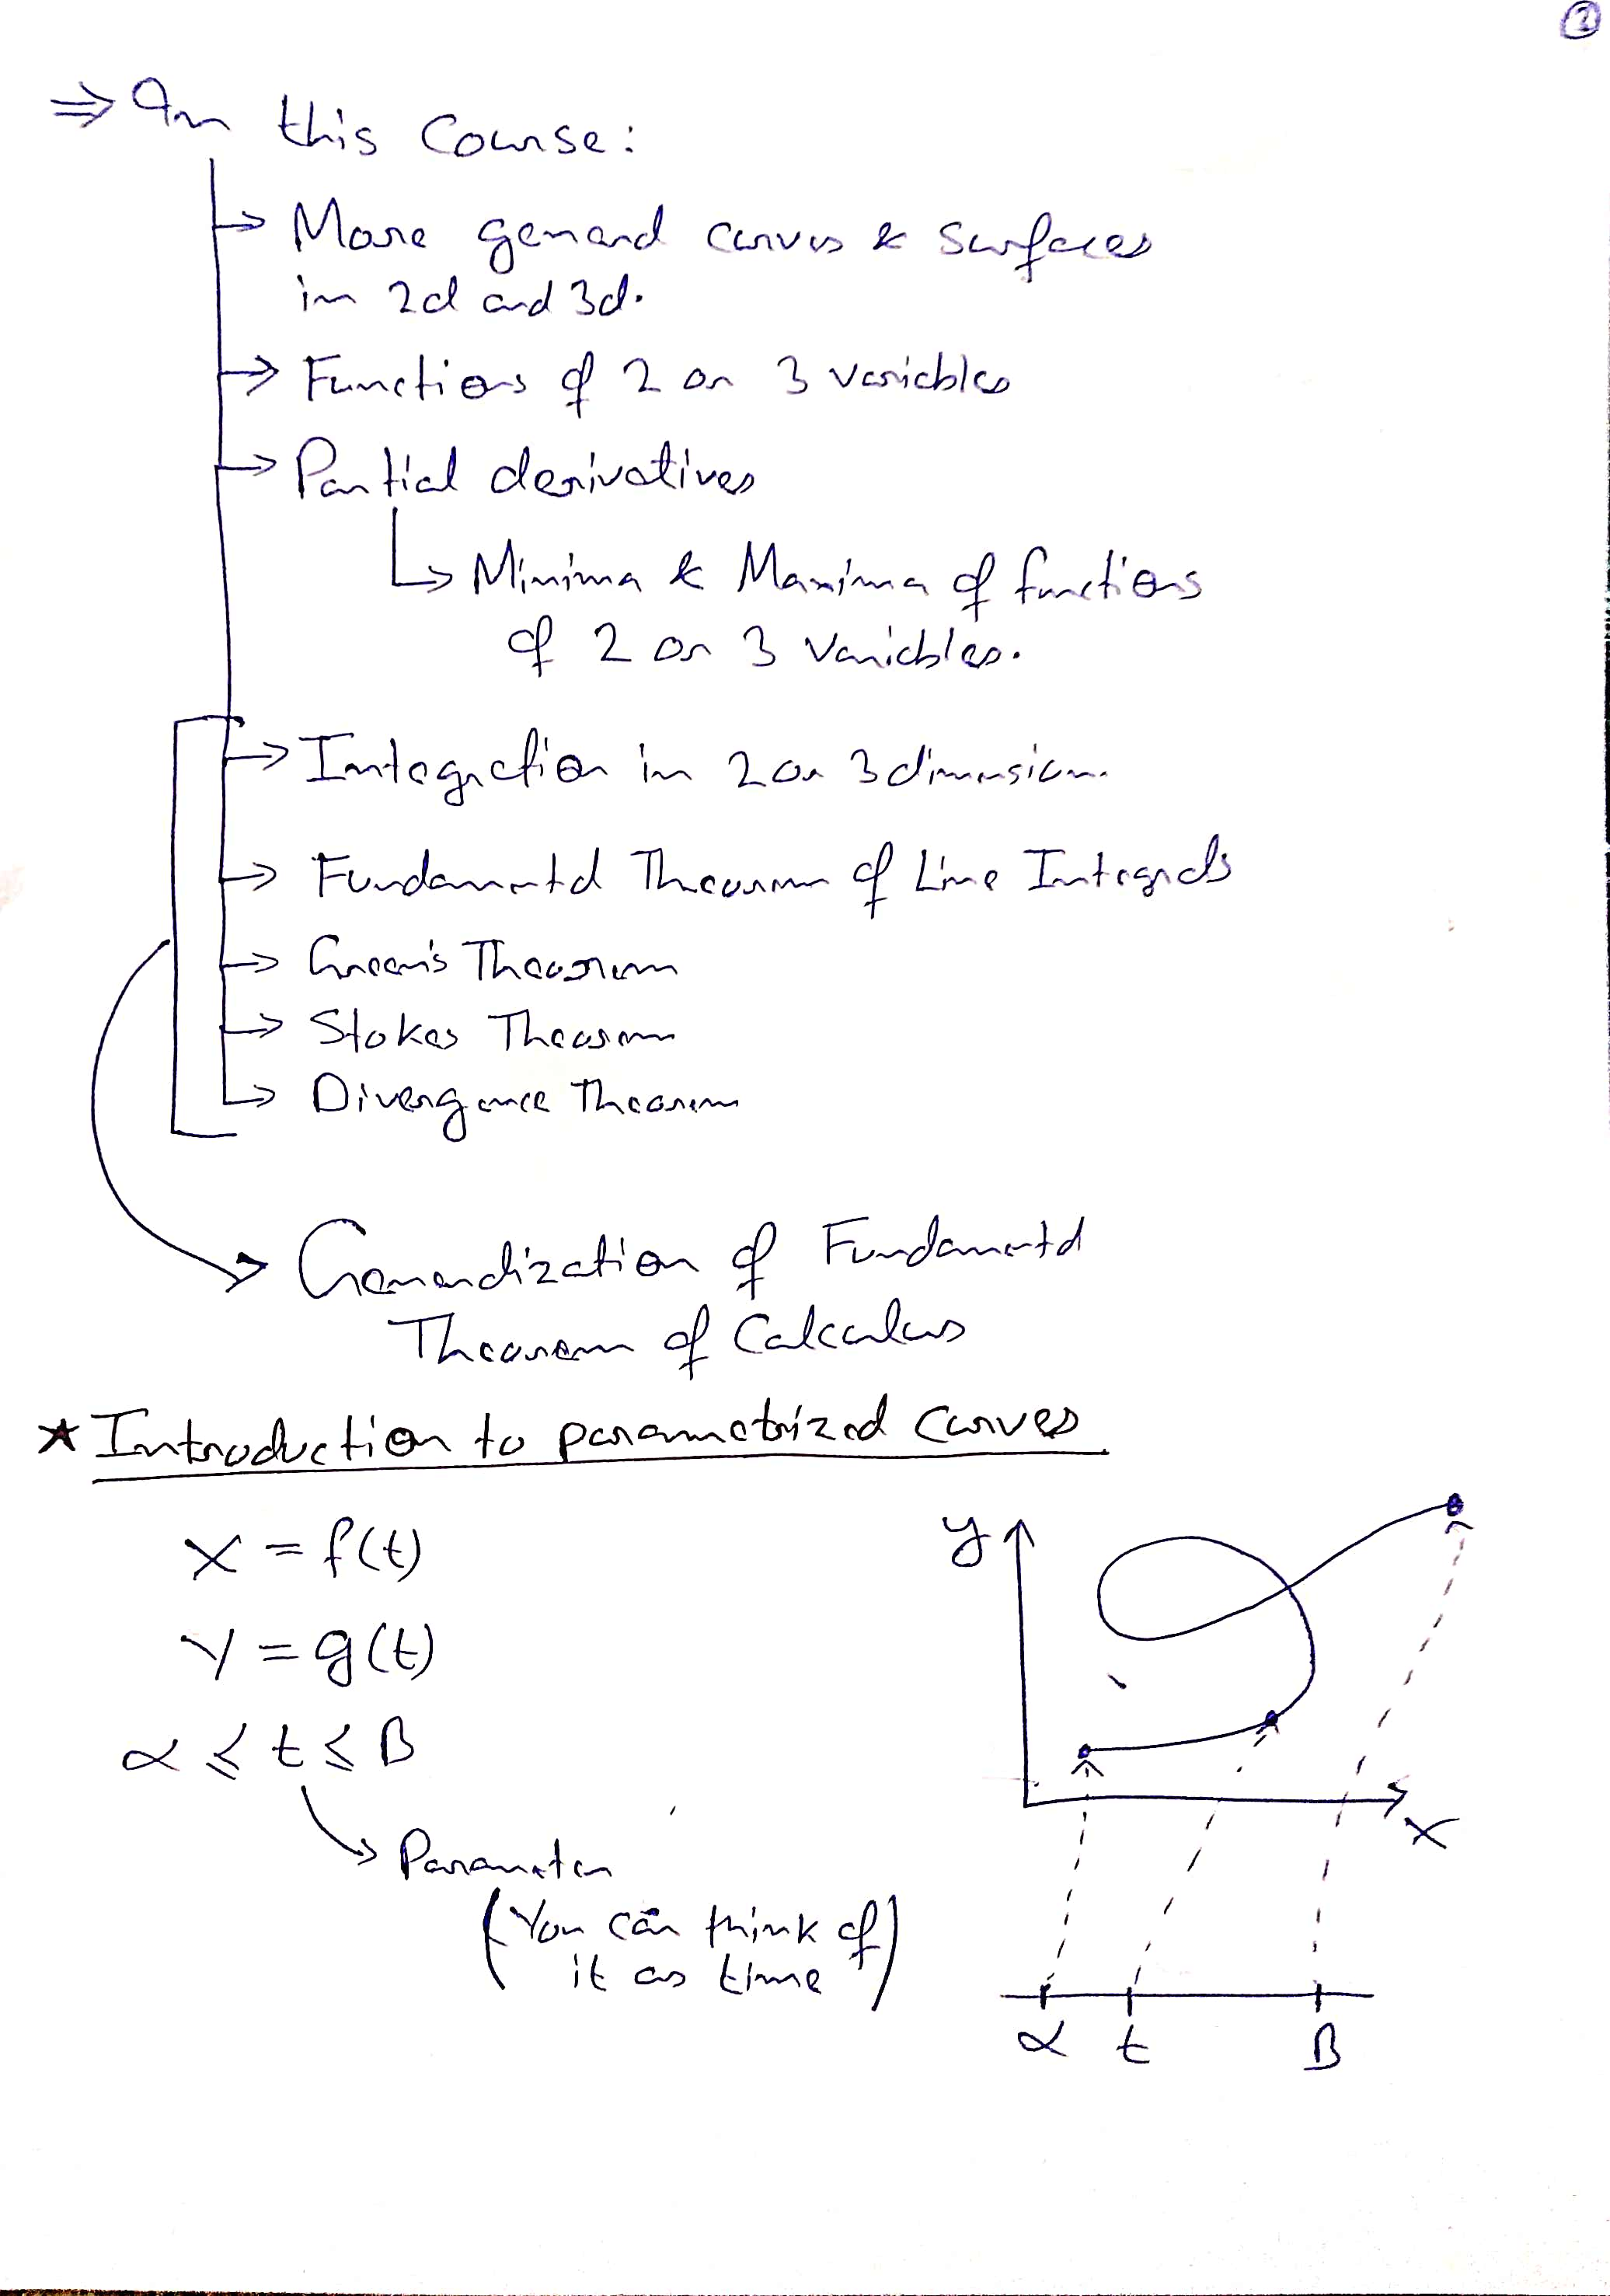 2
⇒ In this Course:
→ More general curves & surfaces
in 2d and 3d.
→ Functions of 2 or 3 variables
→ Partial derivatives
↳ Minima & Maxima of functions
of 2 or 3 variables.
→ Integration in 2 or 3 dimension.
→ Fundamental Theorem of Line Integrals
→ Green's Theorem
→ Stokes Theorem
→ Divergence Theorem
→ Generalization of Fundamental
Theorem of Calculus
★ Introduction to parametrized curves
x = f(t)
y = g(t)
α ≤ t ≤ β
→ Parameter
(You can think of
it as time)
y
x
α t β